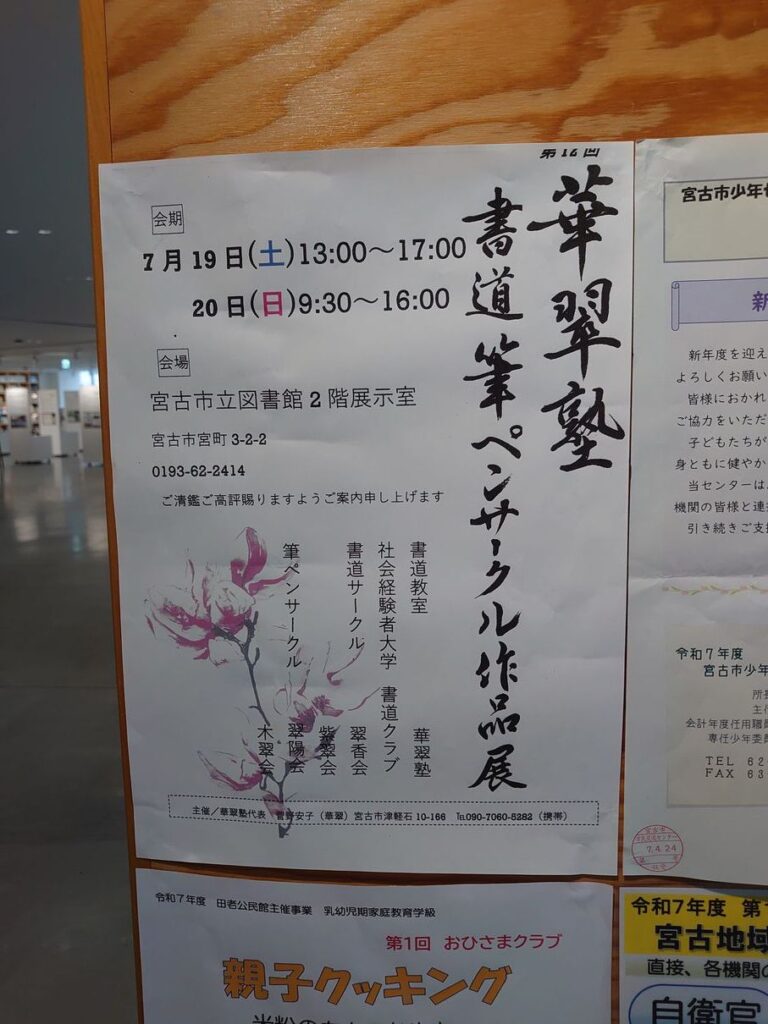 第12回
華翠塾
書道筆ペンサークル作品展
会期
7月19日(土)13:00～17:00
20日(日)9:30～16:00
会場
宮古市立図書館2階展示室
宮古市宮町3-2-2
0193-62-2414
ご清鑑ご高評賜りますようご案内申し上げます
書道教室 華翠塾
社会経験者大学 書道クラブ
書道サークル 翠香会
紫翠会
筆ペンサークル 翠陽会
木翠会
主催／華翠塾代表 菅野安子（華翠）宮古市津軽石10-166 ℡090-7060-5282（携帯）
宮古市少年
新
新年度を迎え
よろしくお願い
皆様におかれ
ご協力をいただ
子どもたちが
身ともに健やか
当センターは
機関の皆様と連
引き続きご支
令和7年度
宮古市少年
所
主
会計年度任用職員
専任少年委
TEL 62
FAX 63
7.4.24
令和7年度 田老公民館主催事業 乳幼児期家庭教育学級
第1回 おひさまクラブ
親子クッキング
令和7年度 第1
宮古地域
直接、各機関の
自衛官